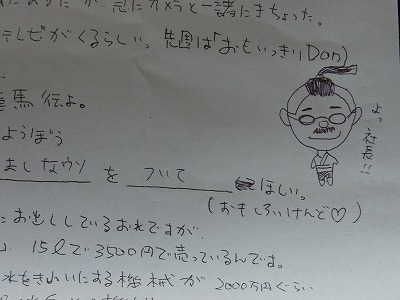 急にカメラと一諸にきちょった。
テレビがくるらしい。先週は「おもいっきりDon」
馬伝よ。
ようぼう
ましなウソ を ついて ほしい。
(おもしろいけんど♡)
よっ社長!!
にお出ししているおれですが、
15ℓで3500円で売っているんです。
水をきれいにする機械が 2000万円ぐらい